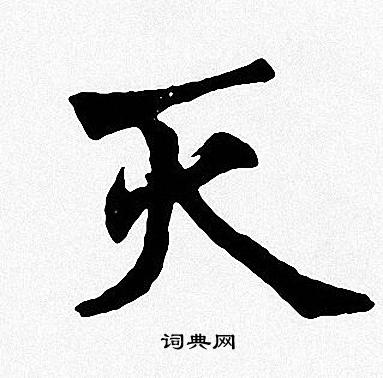 灭
词典网